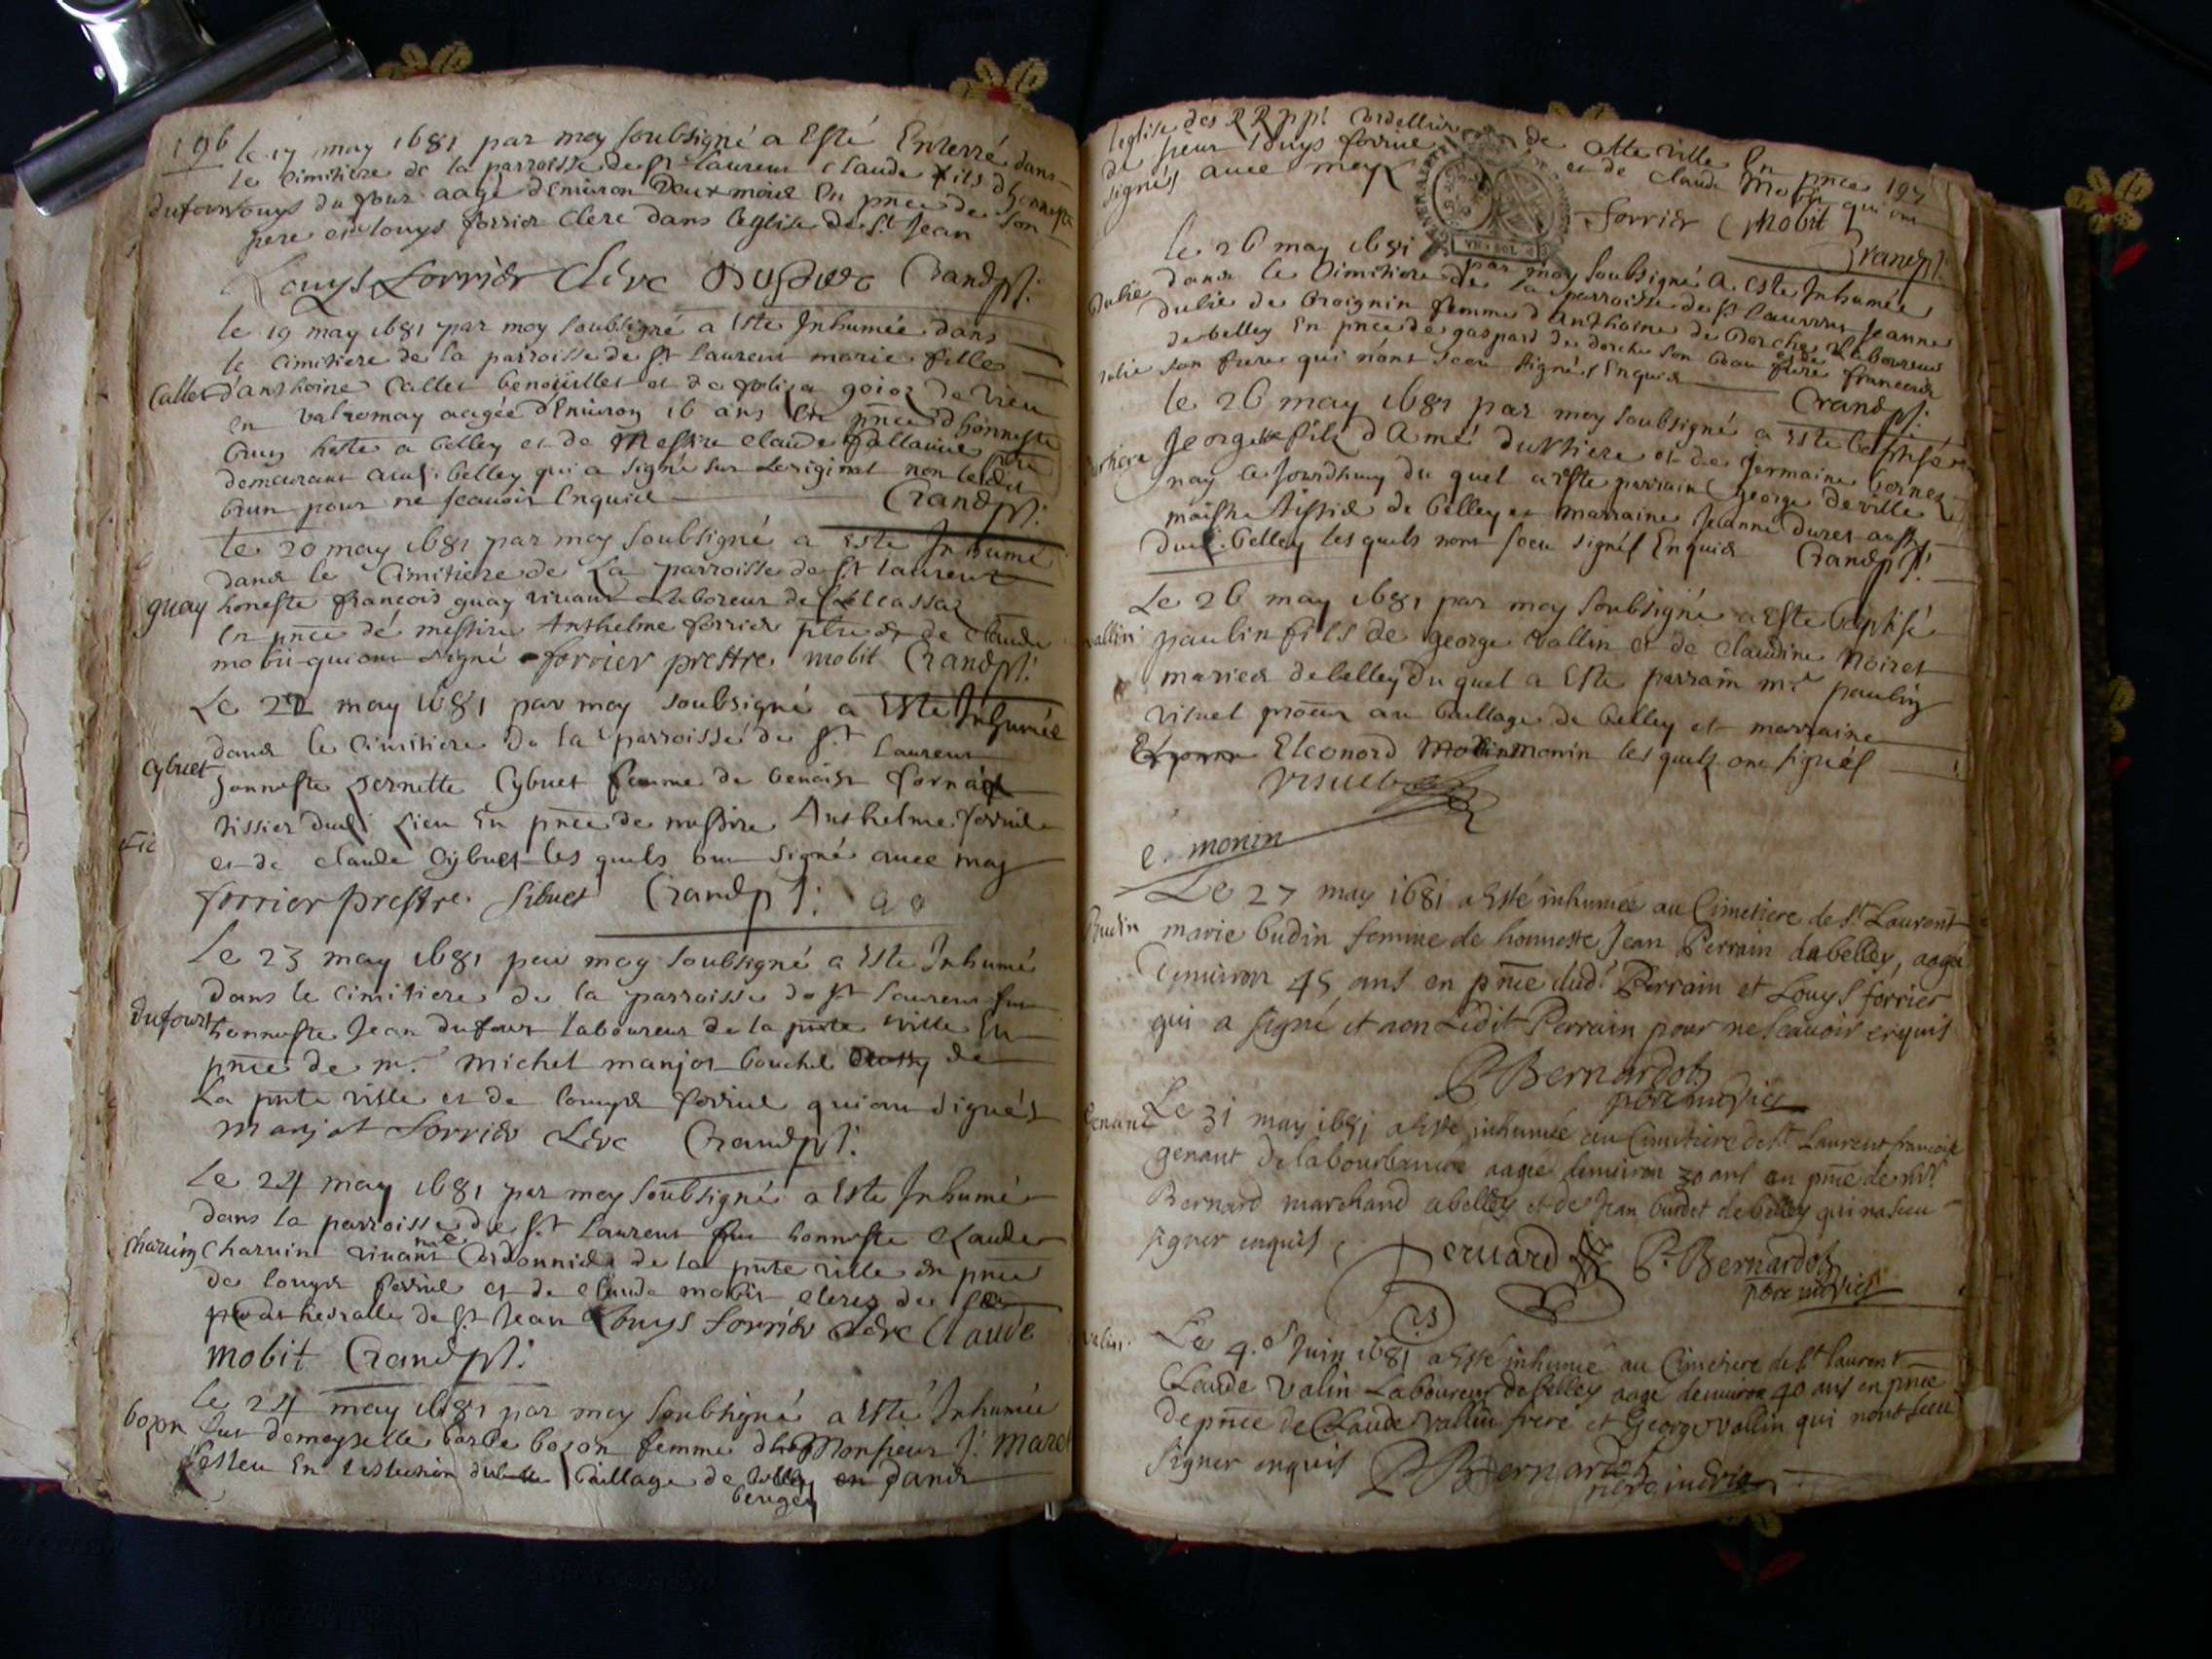 196
le 17 may 1681 par moy soubsigné a Esté Enterré dans
le Cimitiere de la parroisse de st laurens Claude fils d'honneste
dufour
louys du four aagé d'Enuiron deux mois En pnce de son
pere et louys forrier Clerc dans l'eglise de St Jean
Louys Forrier Clerc Dufour Crandpt.
le 19 may 1681 par moy soubsigné a Este Inhumée dans
le Cimitiere de la parroisse de st laurens marie fille
Callet
d'anthoine Callet benoüillet et de goioz de Vieu
En valromay aagée d'Enuiron 16 ans En pnce d'honneste
brun hoste a belley et de Messire Claude
demeurant aud. belley qui a signé sur Loriginal non ledit
brun pour ne scauoir Enquis Crandpt.
le 20 may 1681 par moy soubsigné a Este Inhumé
dans le Cimitiere de La parroisse de st laurens
guay
honeste francois guay viuant Laboreur de
En pnce de messire Anthelme forrier ptre et de Claude
mobit qui ont signé forrier prestre mobit Crandpt.
Le 22 may 1681 par moy soubsigné a Este Inhumée
dans le Cimitiere de la parroisse de st laurens
Cybuet
honneste pernette Cybuet femme de benoist
tissier dud. Lieu En pnce de messire Anthelme forrier
et de claude Cybuet les quels ont signé auec moy
forrier prestre Sibuet Crandpt.
Le 23 may 1681 par moy soubsigné a Este Inhumé
dans le cimitiere de la parroisse de st laurens fut
dufour
honneste Jean dufour laboureur de la pnte ville En
pnce de mr michel manjot de
La pnte ville et de louys forrier qui ont signés
manjot Forrier Clerc Crandpt.
Le 24 may 1681 par moy soubsigné a Este Inhumé
dans la parroisse de St laurens fut honneste Claude
Charuin
Charuin viuant Cordonnier de la pnte ville en pnce
de louys forrier et de claude mobit clercs de
de St Jean Louys Forrier Clerc Claude
mobit Crandpt.
le 24 may 1681 par moy soubsigné a Esté Inhumée
bozon
fut demoyselle barbe bozon femme de Monsieur
En L'eslection baillage de en dans
beugey
l'eglise des RR pp. Cordelliers de cette ville En pnce 197
de sieur louys forrier et de claude Mobit qui ont
signés auec moy Forrier Mobit
Crandpt.
le 26 may 1681 par moy soubsigné a Este Inhumée
dans le Cimitiere de la parroisse de st laurens Jeanne
femme d'anthoine de dorche Laboureur
de belley En pnce de gaspard de dorche son beau frere et de francois
son frere qui n'ont sceu signés Enquis
Crandpt.
le 26 may 1681 par moy soubsigné a Este baptisé
George fils d'Amé et de germaine
nay le Jourdhuy du quel a este parrain George deville
maistre tissier de belley et marraine Jeanne aussy
dud. belley les quels n'ont sceu signés Enquis Crandpt.
Le 26 may 1681 par moy soubsigné a Este baptisé
vallin
paulin fils de george vallin et de claudine noiret
mariés de belley du quel a Este parrain mr paulin
vituel procur au baillage de belley et marraine
Eleonord monin les quels ont signés
e. monin
Le 27 may 1681 a Esté inhumée au Cimetiere de St Laurent
Budin
marie budin femme de honneste Jean Perrain de belley, aagée
d'enuiron 45 ans en pnce dudt Perrain et Louys forrier
qui a signé et non Ledit Perrain pour ne scauoir enquis
P Bernardot
Genant
Le 31 may 1681 a Esté inhumée au Cimetiere de St Laurent francoise
genant de labourbanne aagée denuiron 30 ans en pnce de mr
Bernard marchand a belley et de Jean burdet de belley qui na sceu
signer enquis Bernard P. Bernardot
Valin
Le 4e Juin 1681 a Esté inhumé au Cimetiere de St laurent
Claude Valin Laboureur de belley aagé denuiron 40 ans en pnce
de pnce de Claude Vallin frere et George vallin qui n'ont sceu
signer enquis P Bernardot